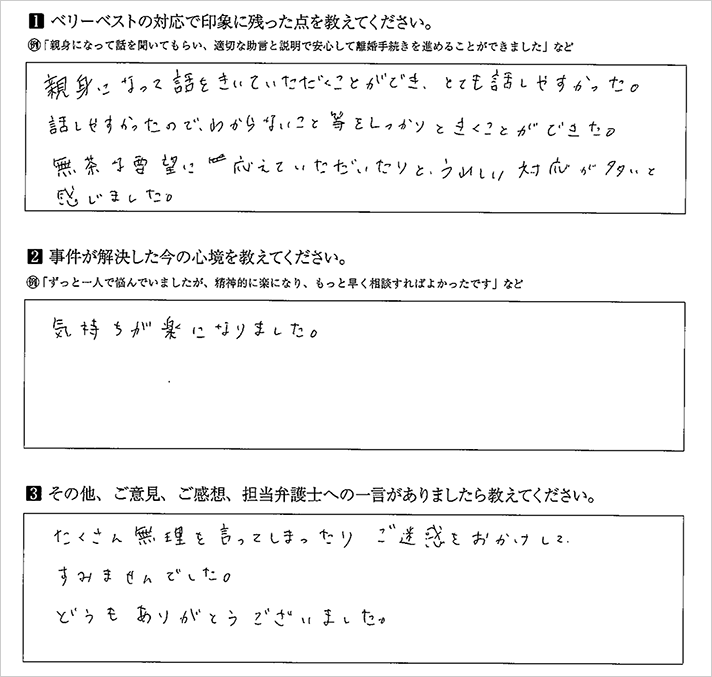 1 ベリーベストの対応で印象に残った点を教えてください。
例「親身になって話を聞いてもらい、適切な助言と説明で安心して離婚手続きを進めることができました」など
親身になって話をきいていただくことができ、とても話しやすかった。
話しやすかったので、わからないこと等をしっかりときくことができた。
無茶な要望に応えていただいたりと、うれしい対応が多いと
感じました。
2 事件が解決した今の心境を教えてください。
例「ずっと一人で悩んでいましたが、精神的に楽になり、もっと早く相談すればよかったです」など
気持ちが楽になりました。
3 その他、ご意見、ご感想、担当弁護士への一言がありましたら教えてください。
たくさん無理を言ってしまったりご迷惑をおかけして、
すみませんでした。
どうもありがとうございました。